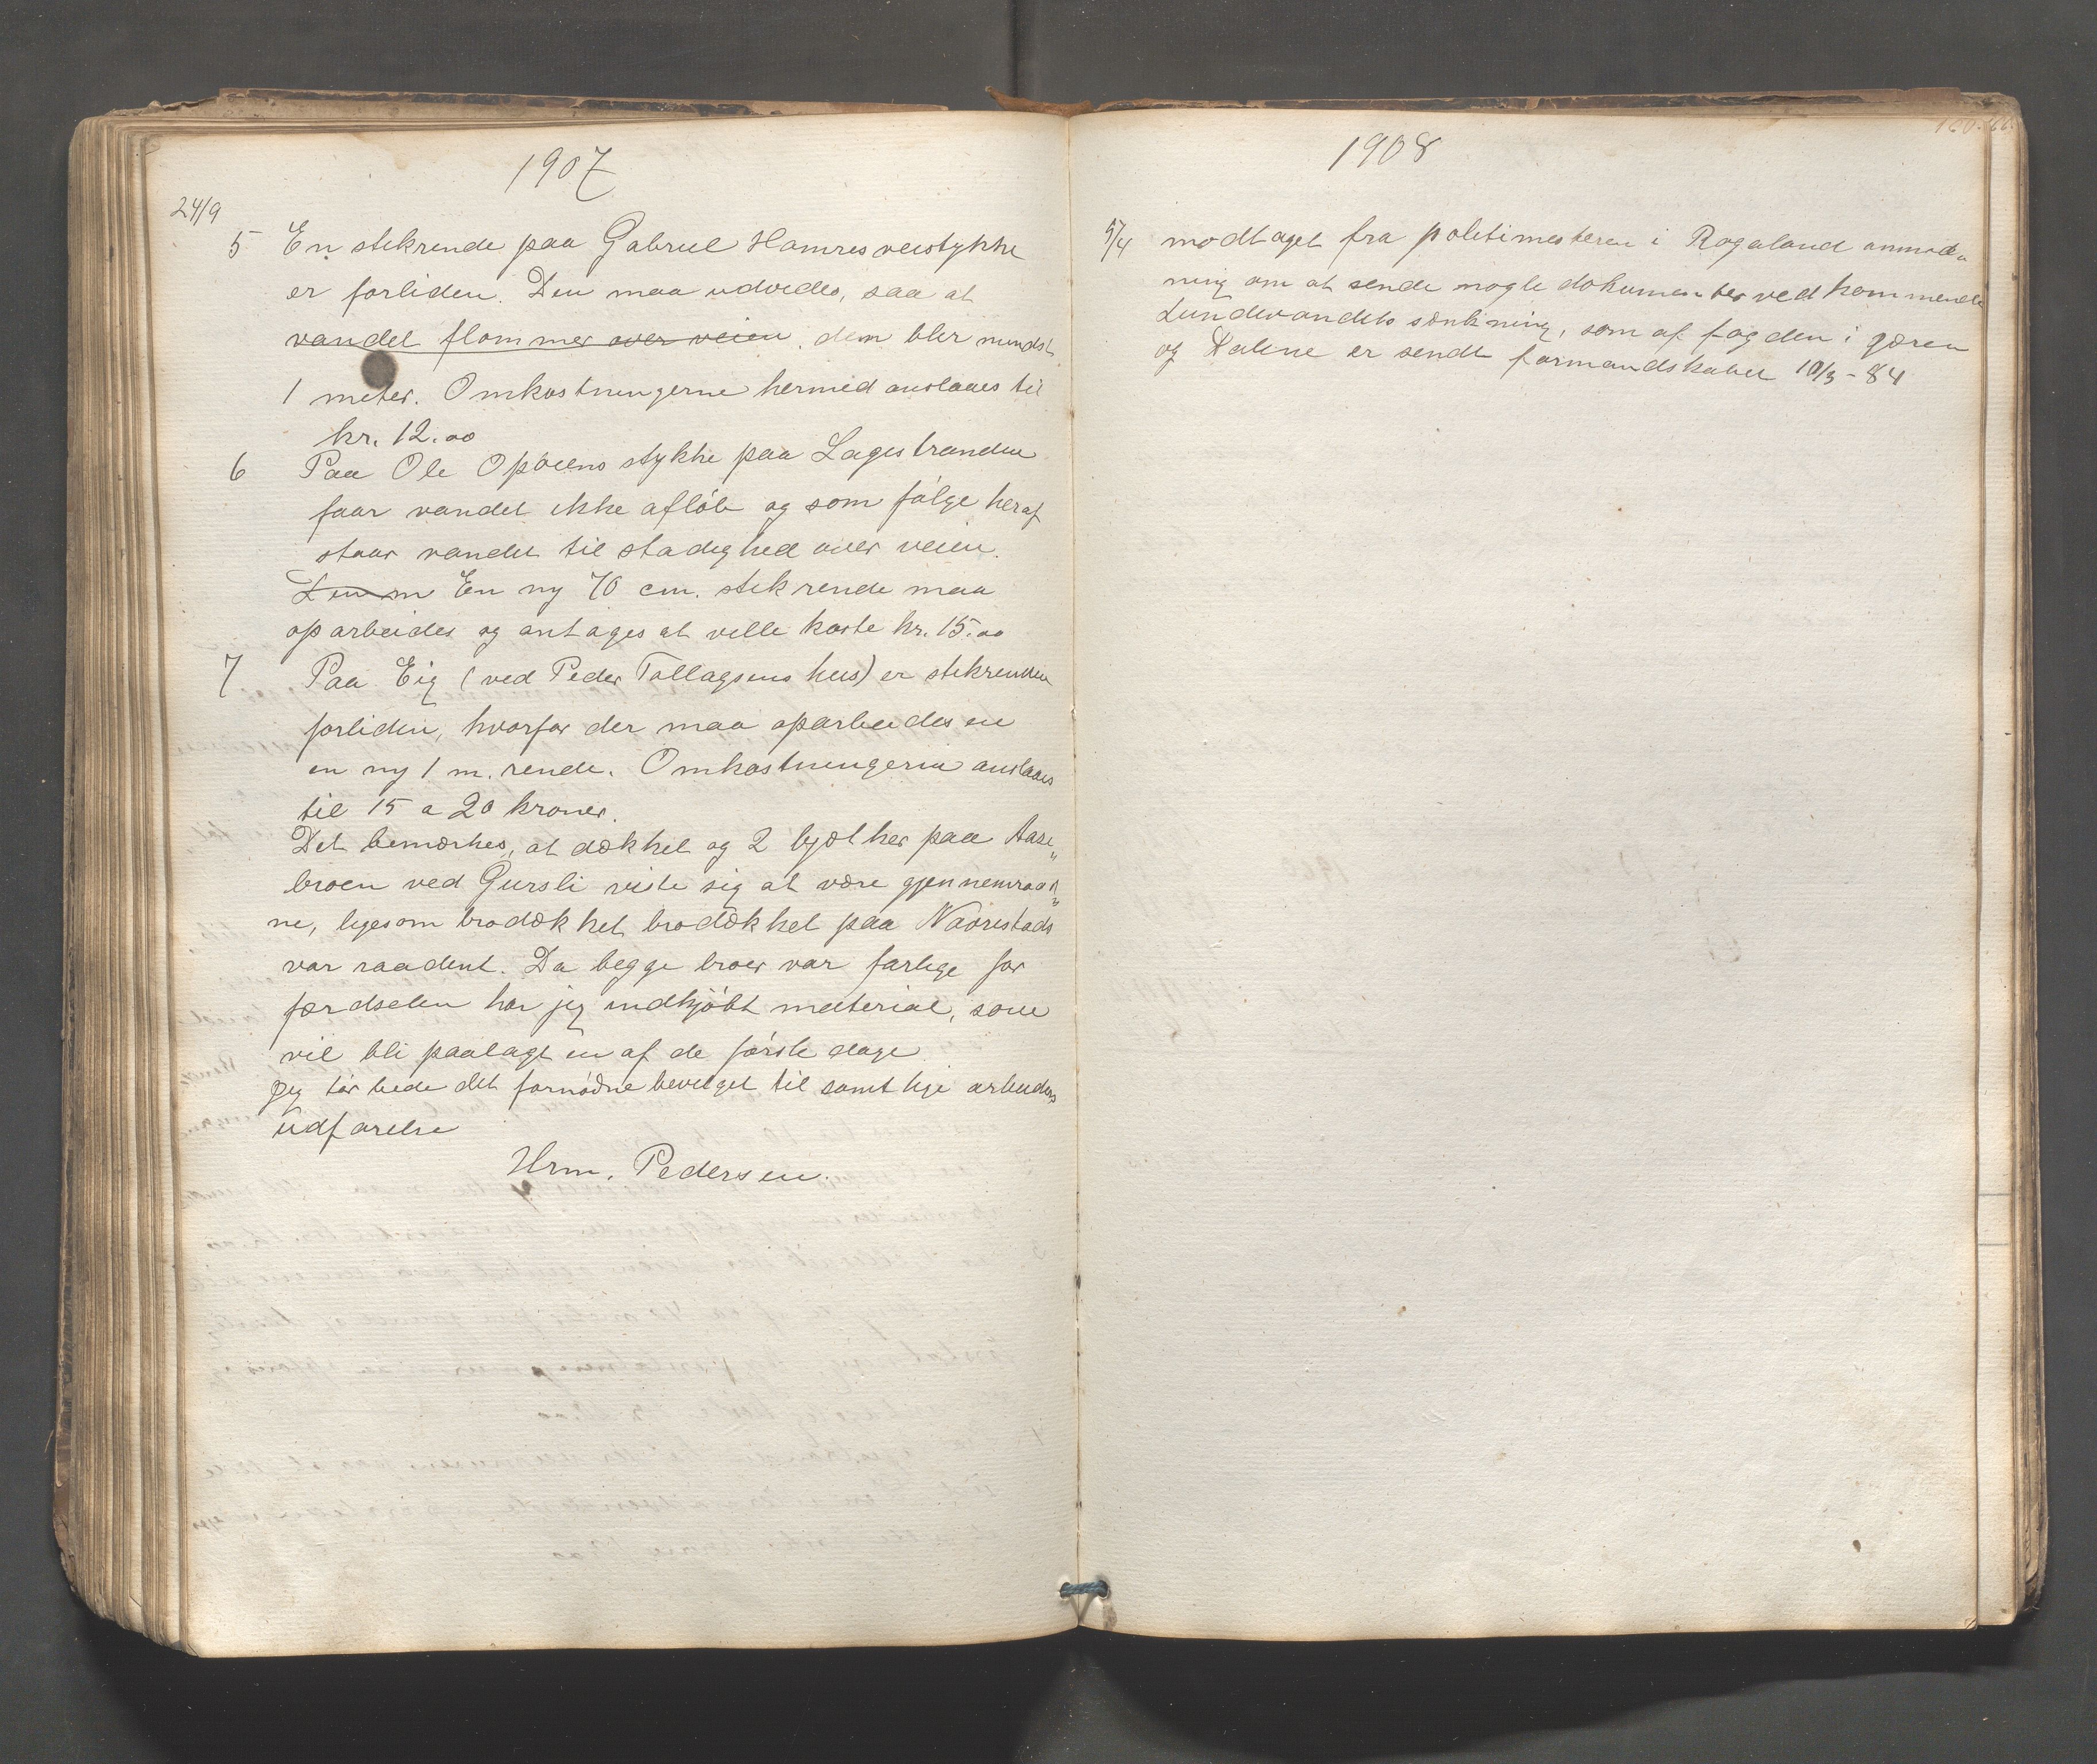 1907
24/9
5 En stikrende paa Gabriel Hamres veistykke
er forliden. Den maa udvides, saa at
vandet flommer over veien. den blir mindst
1 meter. Omkostningerne hermed anslaaes til
kr. 12.00
6 Paa Ole Opøiens stykke paa Lagestranden
faar vandet ikke afløb og som følge heraf
staar vandet til stadighed over veien.
Den m En ny 70 cm. stikrende maa
oparbeides og antages at ville koste kr. 15.00
7 Paa Eig (ved Peder Tollagsens hus) er stikrenden
forliden, hvorfor der maa oparbeides en
en ny 1 m. rende. Omkostningerne anslaaes
til 15 a 20 kroner.
Det bemærkes, at dækket og 2 bjælker paa Aase„
broen ved Gursli viste sig at være gjennemraad„
ne, ligesom brodækket brodækket paa Naarestads
var raadent. Da begge broer var farlige for
færdselen har jeg indkjøbt material, som
vil bli paalagt en af de første dage
Jeg tør bede det fornødne bevilget til samtlige arbeiders
udførelse
Hrm. Pedersen.
1908
160. 66.
5/4 modtaget fra politimesteren i Rogaland anmod„
ning om at sende nogle dokumenter vedkommende
Lundevandets sænkning, som af fogden i Jæren
og Dalene er sendt formandskabet 10/3 - 84